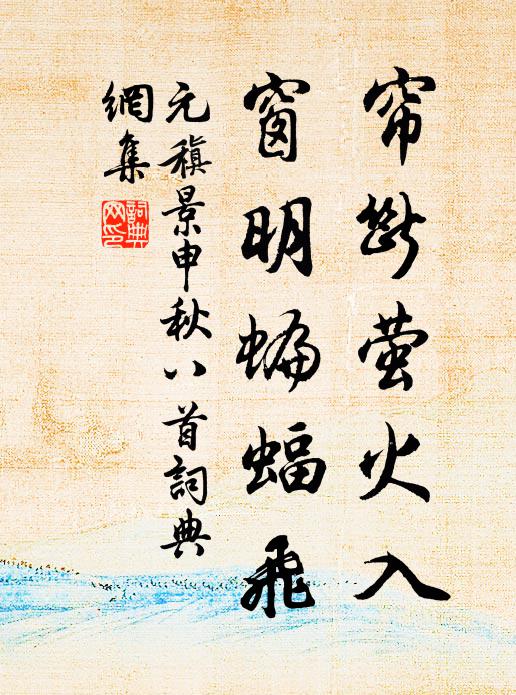 帘断萤火入
窗明蝙蝠飛
元稹景申秋八首詞典
網集
詞典
网印